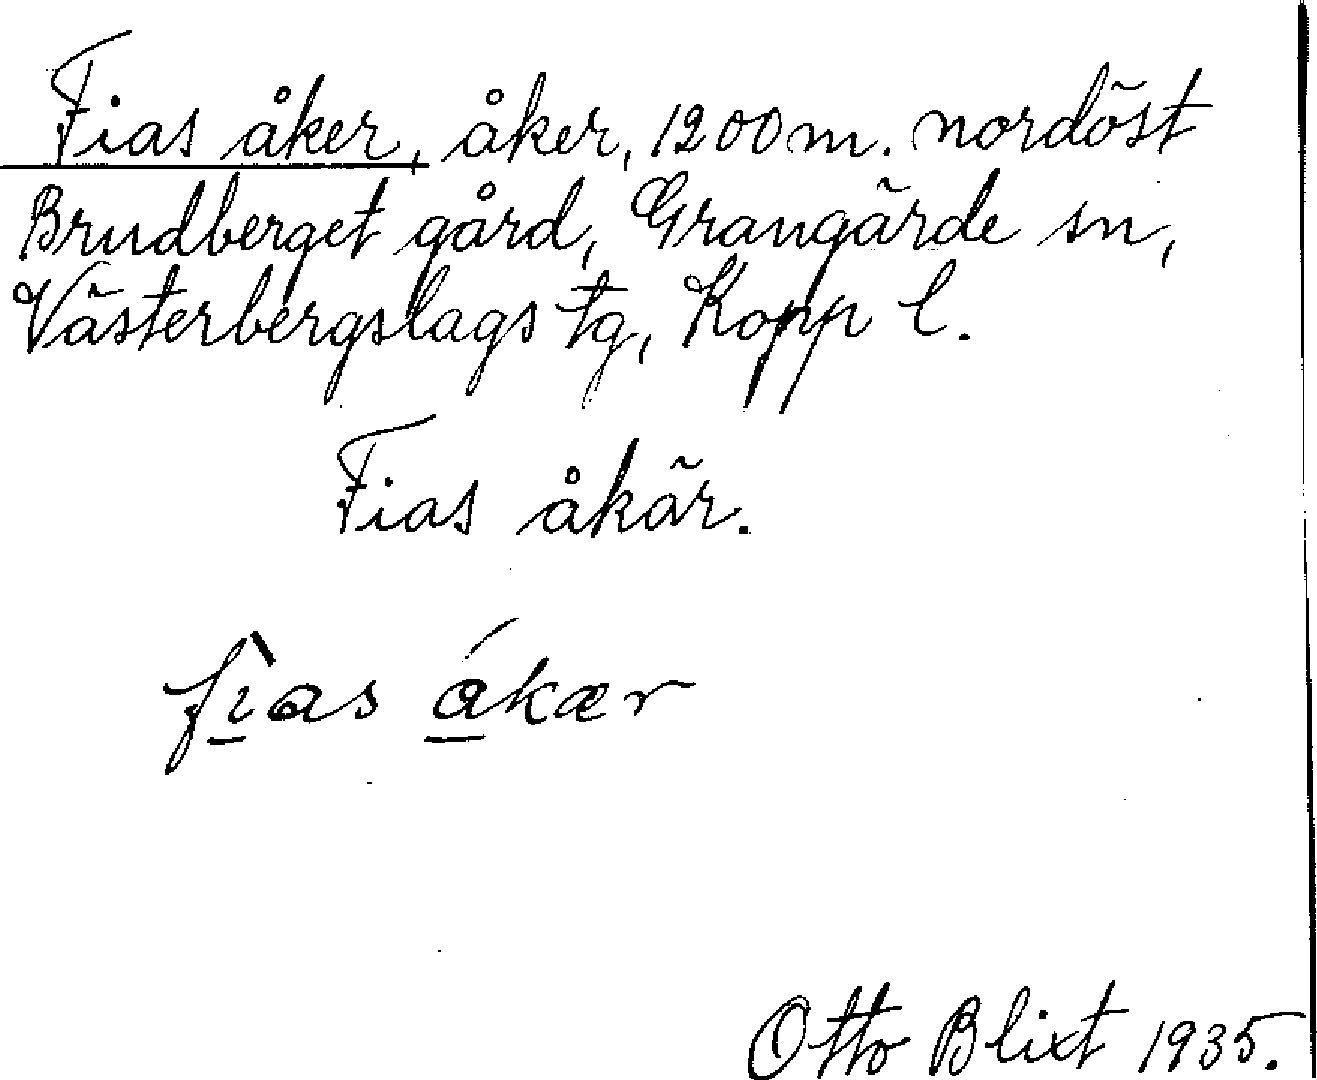 Fias åker, åker, 1200 m. nordöst
Brudberget gård, Grangärde sn,
Västerbergslags tg, Kopp l.
Fias åkär.
fìas ákær
Otto Blixt 1935.